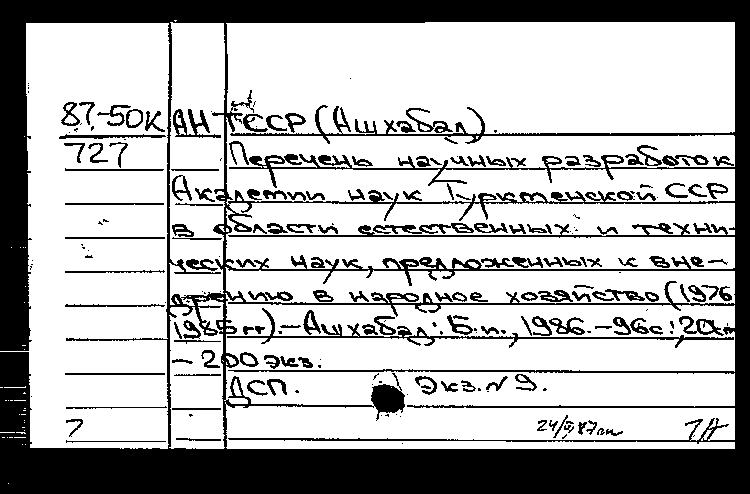 87-50К АН ТССР (Ашхабад).
727 Перечень научных разработок
Академии наук Туркменской ССР
в области естественных и техни-
ческих наук, предложенных к вне-
дрению в народное хозяйство (1976
1985 гг). - Ашхабад: Б.и., 1986. - 96с; 20см
- 200 экз.
ДСП. Экз. N 9.
7 24/ 87